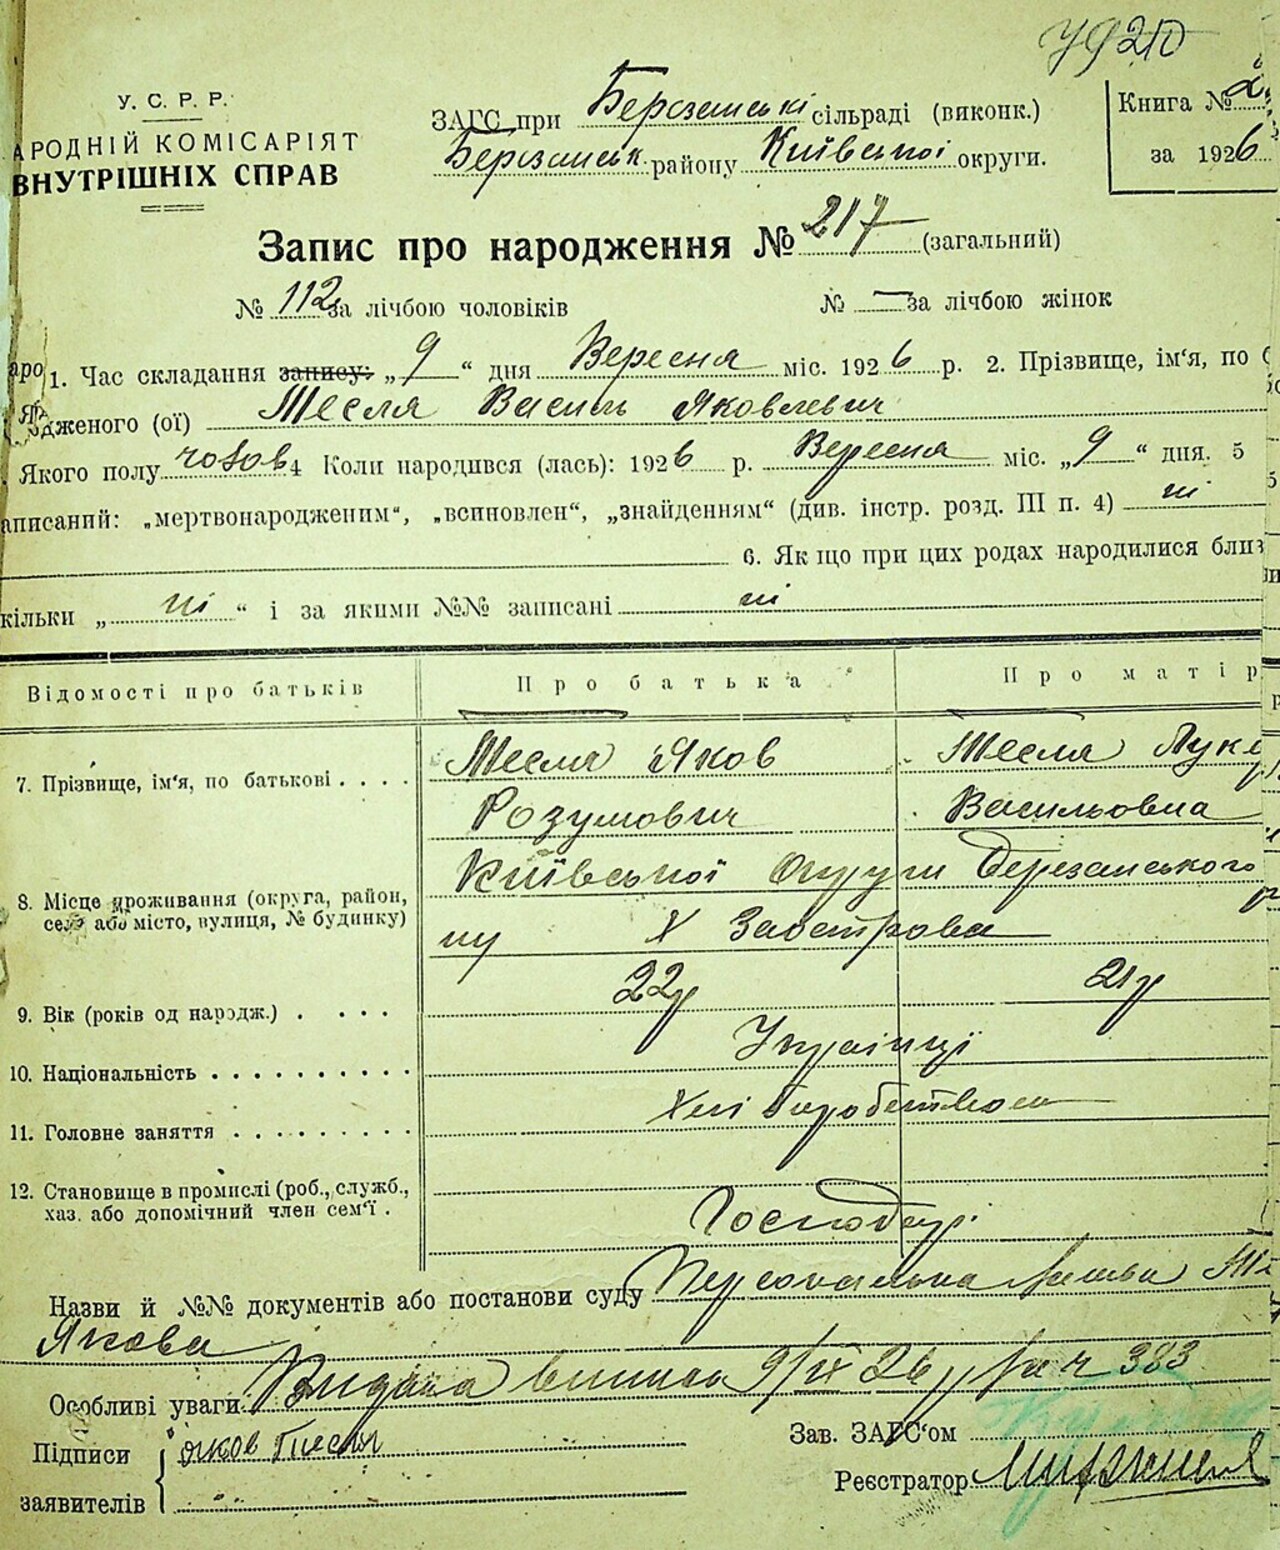 У. С. Р. Р.
АРОДНІЙ КОМІСАРІЯТ
ВНУТРІШНІХ СПРАВ
ЗАГС при Березанські сільраді (виконк.)
Березанськ. району Київської округи.
Книга № 2
за 1926
Запис про народження № 217 (загальний)
№ 112 за лічбою чоловіків № — за лічбою жінок
1. Час складання запису: „9“ дня Вересня міс. 1926 р. 2. Прізвище, ім‘я, по
дженого (ої) Тесля Василь Яковлевич
Якого полу чолов 4 Коли народився (лась): 1926 р. Вересня міс. „9“ дня. 5
аписаний: „мертвонародженим“, „всиновлен“, „знайденням“ (див. інстр. розд. III п. 4) ні
6. Як що при цих родах народилися близ
кільки „ ні “ і за якими №№ записані ні
Відомості про батьків
Про батька
Про матір
7. Прізвище, ім‘я, по батькові . . . .
Тесля Яков
Розумович
Тесля Луке
Васильовна
8. Місце проживання (округа, район,
село або місто, вулиця, № будинку)
Київської Округи Березанського
ну Х Заострова
9. Вік (років од народж.) . . . .
22р
21р
10. Національність . . . . . . . . . .
Українці
11. Головне заняття . . . . . . . . .
Хліборобством
12. Становище в промислі (роб., служб.,
хаз. або допомічний член сем‘ї .
Господарі
Назви й №№ документів або постанови суду Персональна
Якова
Особливі уваги Видана випись 9/IX 26 р за ч 383
Підписи
заявителів
Яков Тесля
Зав. ЗАГС‘ом
Реєстратор